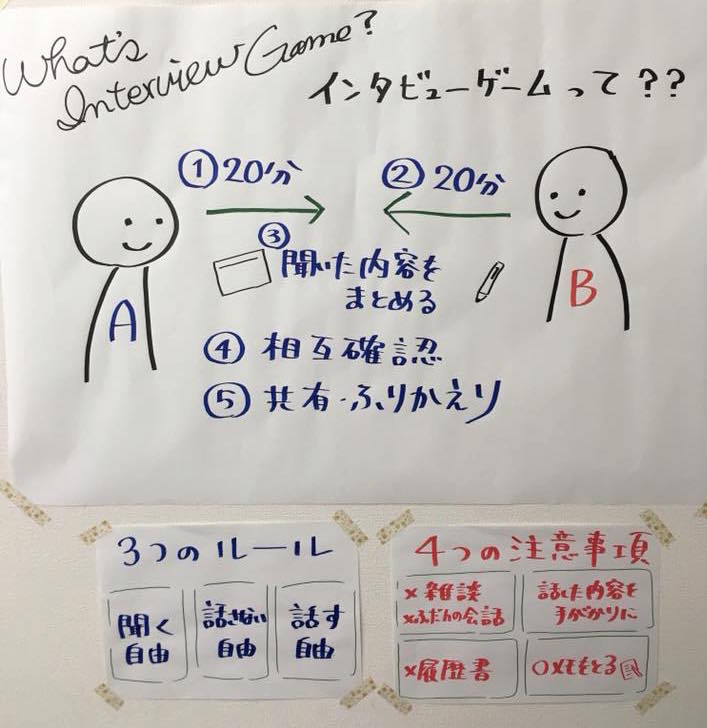 What's
Interview Game?
インタビューゲームって??
①20分
②20分
③
聞いた内容を
まとめる
A
B
④ 相互確認
⑤ 共有・ふりかえり
3つのルール
聞く
自由
話さない
自由
話す
自由
4つの注意事項
×雑談
×ふだんの会話
話した内容を
手がかりに
×履歴書
○メモをとる